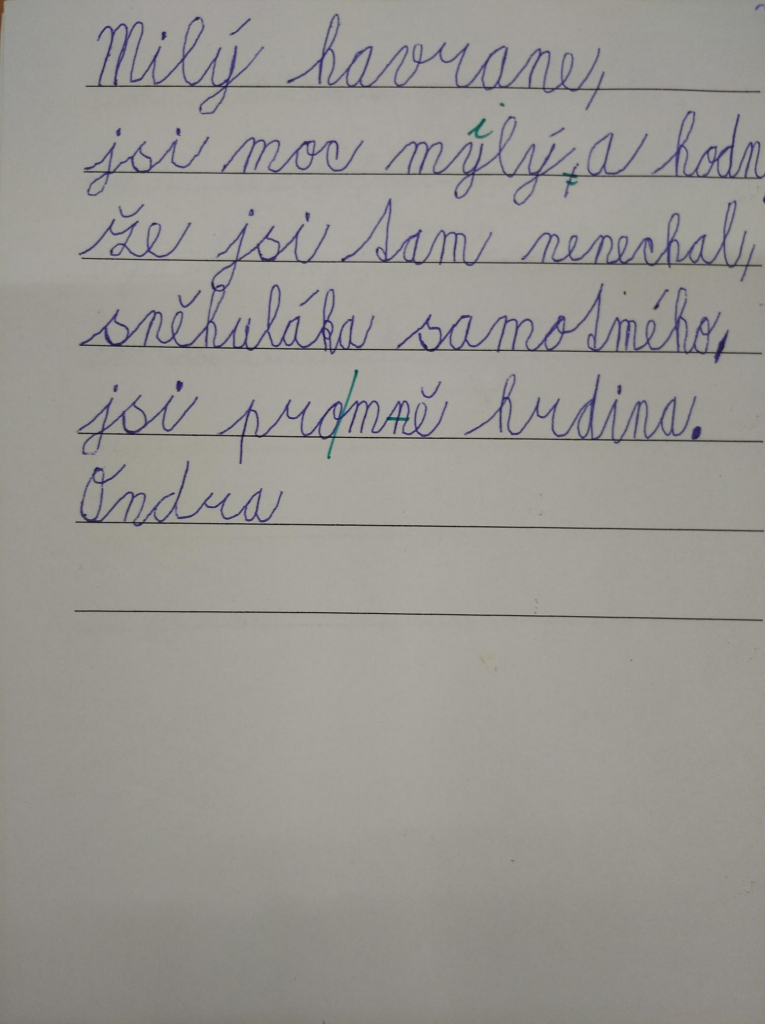 Milý havrane,
jsi moc mýlý, A hodn
že jsi tam nenechal,
sněhuláka samotmého,
jsi promně hrdina.
Ondra